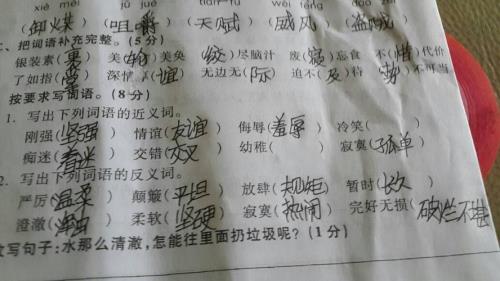 xié mèi jǔ jué tiān fù wēi fēng dào zéi
(御煤)(咀嚼)(天赋)(威风)(盗贼)
、把词语补充完整。(5分)
银装素(裹) 美(轮)美奂 (绞)尽脑汁 废(寝)忘食 不(惜)代价
了如指(掌) 深情(谊) 无边无(际) 迫不(及)待 (势)不可当
按要求写词语。(8分)
1. 写出下列词语的近义词。
刚强(坚强) 情谊(友谊) 侮辱(羞辱) 冷笑( )
痴迷(着迷) 交错(交叉) 幼稚( ) 寂寞(孤单)
2. 写出下列词语的反义词。
严厉(温柔) 颠簸(平坦) 放肆(规矩) 暂时(长久)
澄澈(浑浊) 柔软(坚硬) 寂寞(热闹) 完好无损(破烂不堪
改写句子:水那么清澈,怎能往里面扔垃圾呢?(1分)